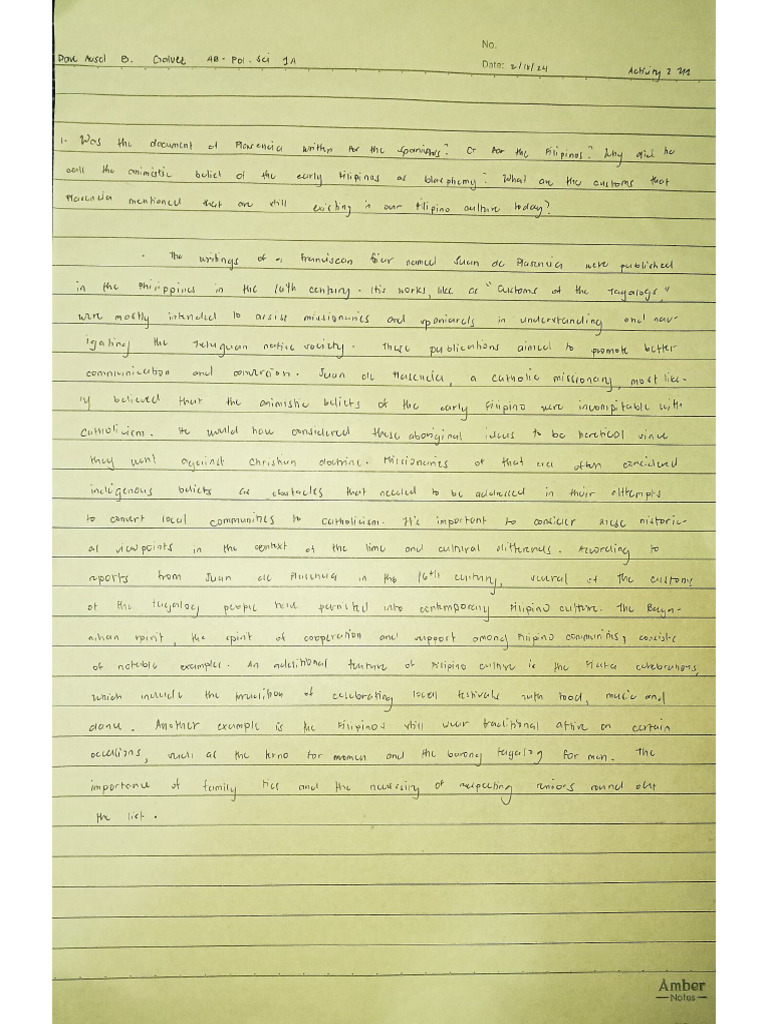 No.
B. AB - Pol. Sci 1A Date: 2/18/24 Activity 2
1. Was the document of Plasencia written for the Spaniards? Or for the Filipinos? Why did he
call the animistic belief of the early Filipinos as blasphemy? What are the customs that
Plasencia mentioned that are still existing in our Filipino culture today?
. The writings of a Franciscan friar named Juan de Plasencia were published
in the Philippines in the 16th century. His works, like as "Customs of the Tagalogs,"
were mostly intended to assist missionaries and spaniards in understanding and nav-
igating the native society. These publications aimed to promote better
communication and conversion. Juan de Plasencia, a catholic missionary, most like-
ly believed that the animistic beliefs of the early Filipino were with
Catholicism. He would have considered these aboriginal ideas to be heretical since
they went against christian doctrine. Missionaries of that era often considered
indigenous beliefs as obstacles that needed to be addressed in their attempts
to convert local communities to catholicism. It's important to consider these historic-
al viewpoints in the context of the time and cultural differences. According to
reports from Juan de Plasencia in the 16th century, several of the customs
of the tagalog people have persisted into contemporary Filipino culture. The Baya-
nihan spirit, the spirit of cooperation and support among Filipino communities, consists
of notable examples. An additional feature of Filipino culture is the fiesta celebrations,
which include the tradition of celebrating local festivals with food, music and
dance. Another example is the Filipinos still wear traditional attire on certain
occasions, such as the terno for women and the barong tagalog for men. The
importance of family ties and the necessity of respecting seniors round out
the list.
Amber
Notes